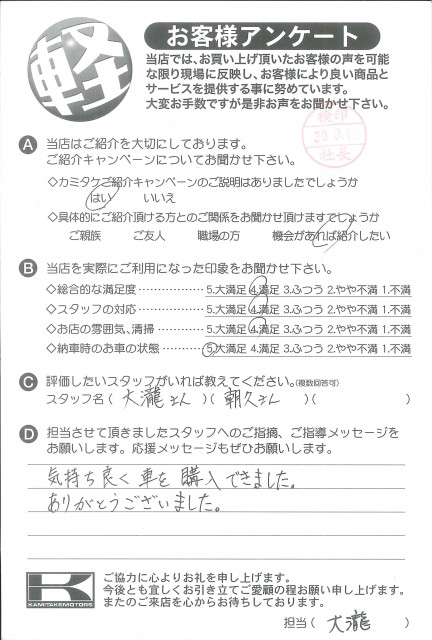 軽
お客様アンケート
当店では、お買い上げ頂いたお客様の声を可能
な限り現場に反映し、お客様により良い商品と
サービスを提供する事に努めています。
大変お手数ですが是非お声をお聞かせ下さい。
検印
30.3.1
社長
A 当店はご紹介を大切にしております。
ご紹介キャンペーンについてお聞かせ下さい。
◇カミタケご紹介キャンペーンのご説明はありましたでしょうか
はい いいえ
◇具体的にご紹介頂ける方とのご関係をお聞かせ頂けますでしょうか
ご親族 ご友人 職場の方 機会があれば紹介したい
B 当店を実際にご利用になった印象をお聞かせ下さい。
◇総合的な満足度……………5.大満足 4.満足 3.ふつう 2.やや不満 1.不満
◇スタッフの対応……………5.大満足 4.満足 3.ふつう 2.やや不満 1.不満
◇お店の雰囲気、清掃…………5.大満足 4.満足 3.ふつう 2.やや不満 1.不満
◇納車時のお車の状態…………5.大満足 4.満足 3.ふつう 2.やや不満 1.不満
C 評価したいスタッフがいれば教えてください。(複数回答可)
スタッフ名( 大瀧さん )( 朝久さん )( )
D 担当させて頂きましたスタッフへのご指摘、ご指導メッセージを
お願いします。応援メッセージもぜひお願いします。
気持ち良く車を購入できました。
ありがとうございました。
K
KAMITAKE MOTORS
ご協力に心よりお礼を申し上げます。
今後とも宜しくお引き立てご愛顧の程お願い申し上げます。
またのご来店を心からお待ちしております。
担当( 大瀧 )